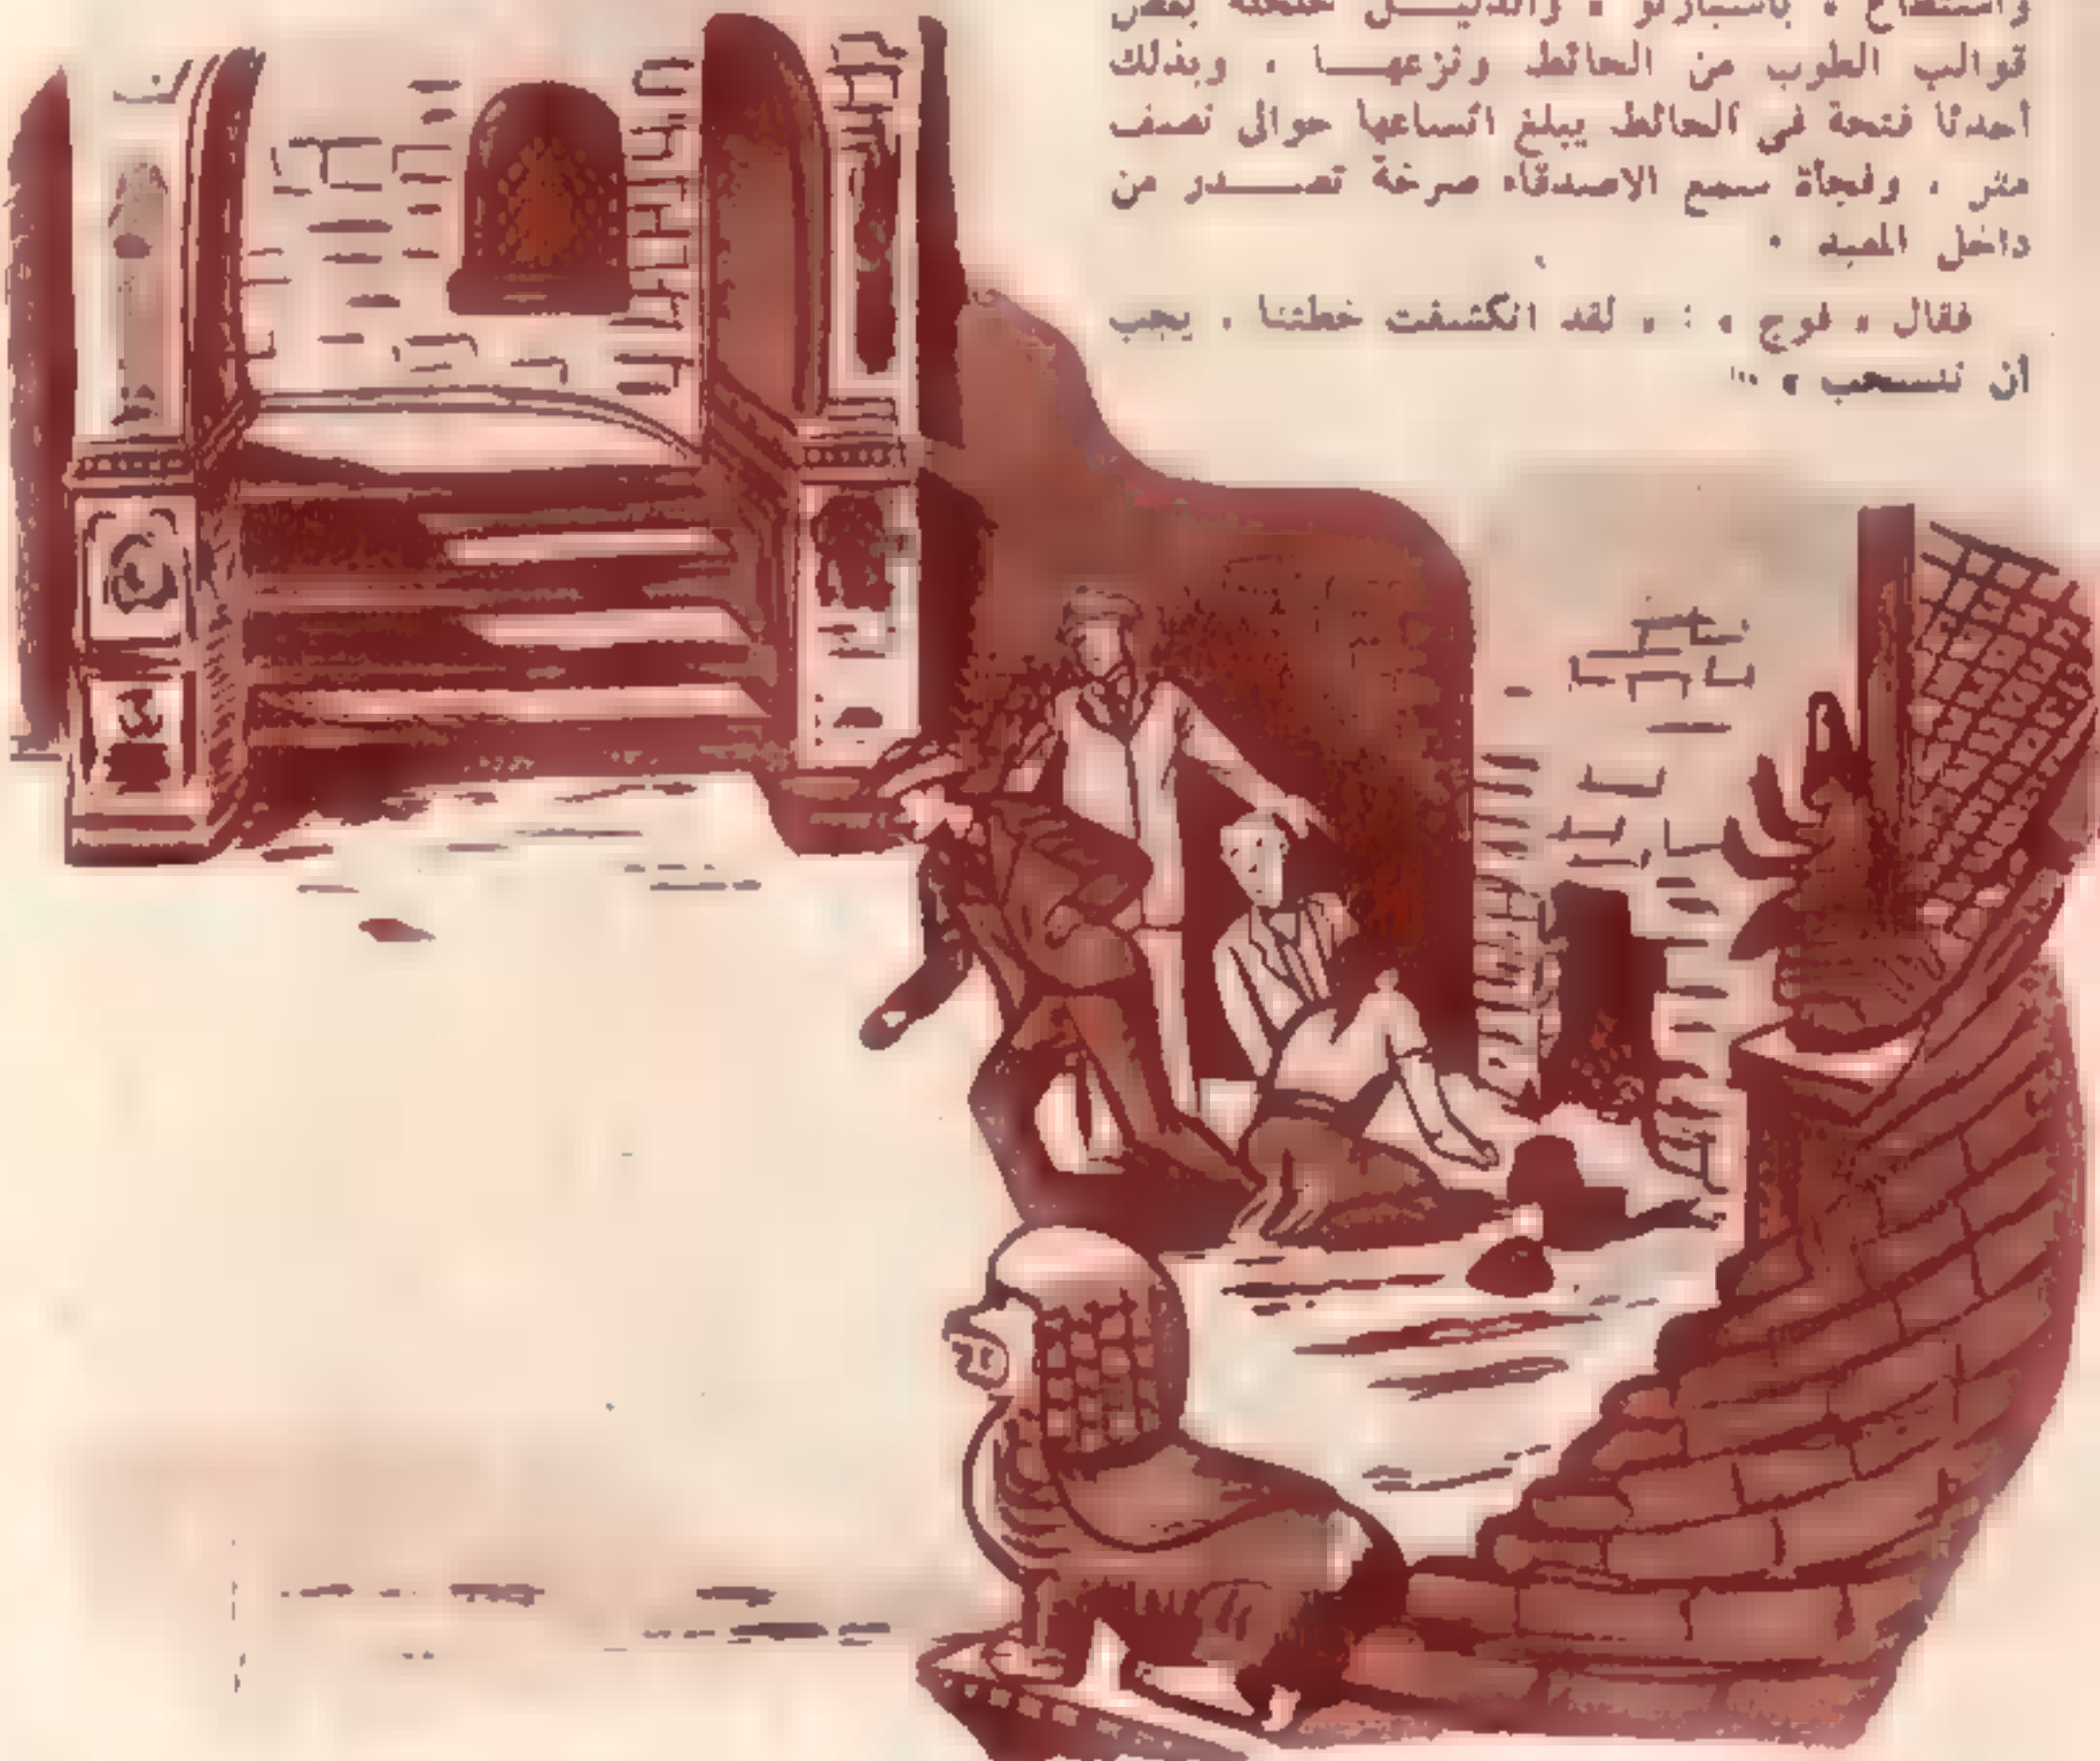 واستطاع « باسبارتو » والدليل خلخلة بعض
قوالب الطوب من الحائط ونزعها . وبذلك
أحدثا فتحة في الحائط يبلغ اتساعها حوالى نصف
متر . وفجأة سمع الاصدقاء صرخة تصدر من
داخل المعبد .
فقال « فوج » : « لقد انكشفت خطتنا . يجب
أن ننسحب » ...